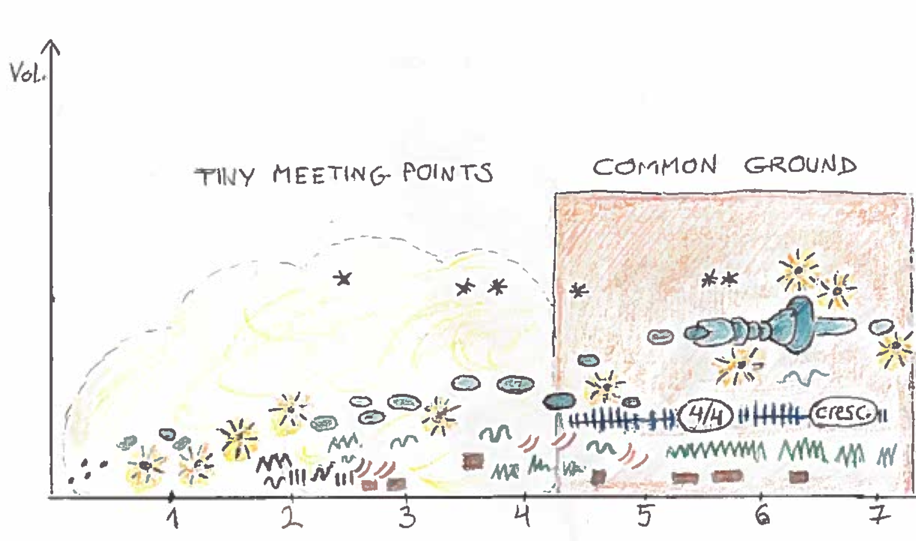 Vol.
TINY MEETING POINTS
COMMON GROUND
4/4
CRESC.
1 2 3 4 5 6 7